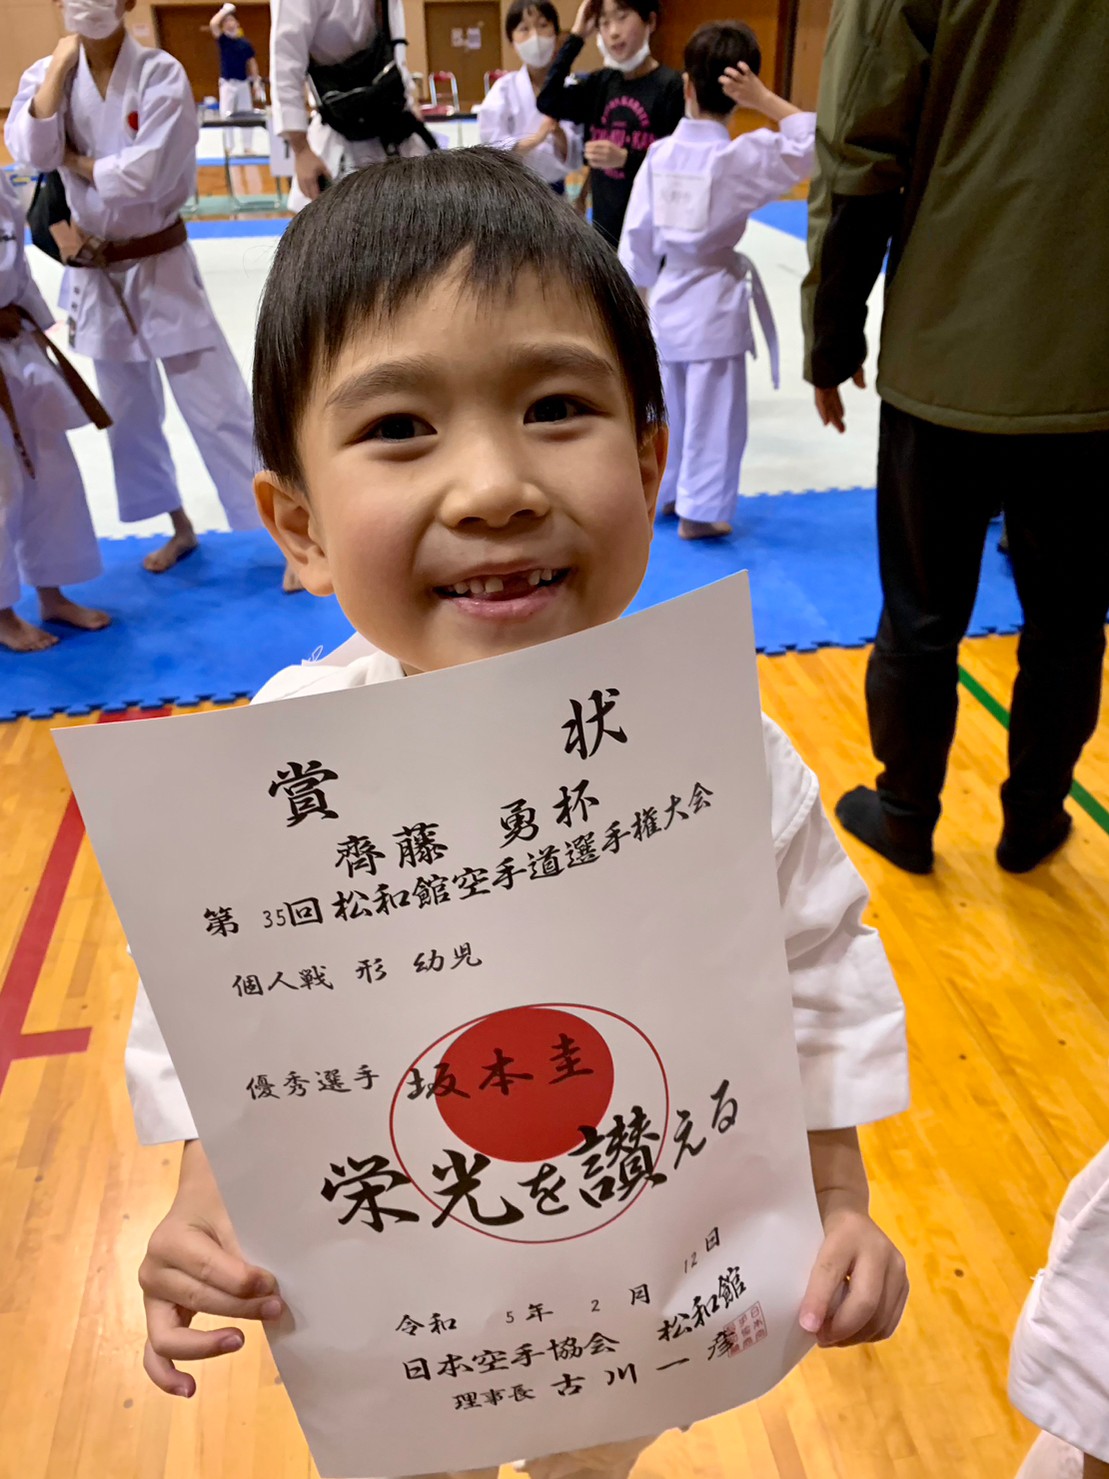 賞状
齊藤 勇杯
第 35回 松和館空手道選手権大会
個人戦 形 幼児
優秀選手 坂本 圭
栄光を讃える
令和 5年 2月 12日
日本空手協会 松和館
理事長 古川一彦